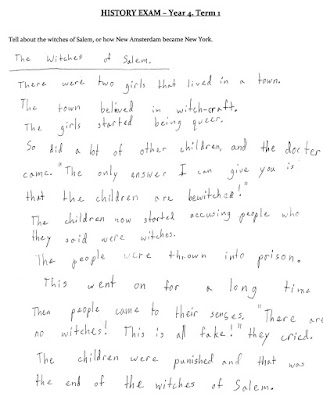 HISTORY EXAM – Year 4, Term 1
Tell about the witches of Salem, or how New Amsterdam became New York.
The Witches of Salem.
There were two girls that lived in a town.
The town belived in witch-craft.
The girls started being queer.
So did a lot of other children, and the docter
came. "The only answer I can give you is
that the children are bewitched!"
The children now started accusing people who
they said were witches.
The people were thrown into prison.
This went on for a long time
Then people came to their senses, "There are
no witches! This is all fake!" they cried.
The children were punished and that was
the end of the witches of Salem.